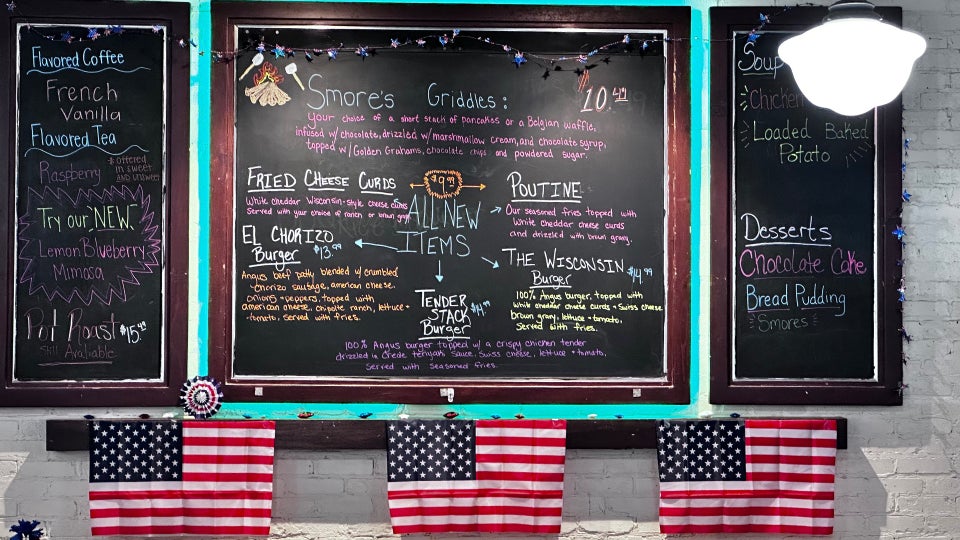 Flavored Coffee
French
Vanilla
Flavored Tea
Raspberry
* offered
in sweet
and unsweet
Try our NEW
Lemon Blueberry
Mimosa
Pot Roast $15.49
Still Available
Smore's Griddles: 10.49
Your choice of a short stack of pancakes or a Belgian waffle,
infused w/ chocolate, drizzled w/ marshmallow cream, and chocolate syrup,
topped w/ Golden Grahams, chocolate chips and powdered sugar.
FRIED CHEESE CURDS
White cheddar Wisconsin-style cheese curds
Served with your choice of ranch or brown gravy
$9.99
ALL NEW
ITEMS
POUTINE
Our seasoned fries topped with
white cheddar cheese curds
and drizzled with brown gravy.
EL CHORIZO
Burger $13.99
Angus beef patty blended w/ crumbled
chorizo sausage, american cheese,
onions + peppers, topped with
american cheese, chipotle ranch, lettuce +
tomato, served with fries.
THE WISCONSIN
Burger $14.99
100% Angus burger, topped with
white cheddar cheese curds + Swiss cheese
brown gravy, lettuce + tomato.
Served with fries.
TENDER
STACK
Burger
100% Angus burger topped w/ a crispy chicken tender
drizzled in teriyaki sauce, Swiss cheese, lettuce + tomato,
Served with seasoned fries.
Soup
Chicken
Loaded Baked
Potato
Desserts
Chocolate Cake
Bread Pudding
Smores